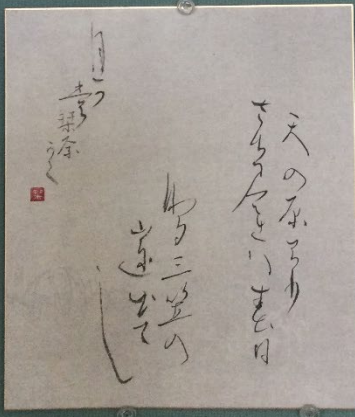 天の原ふり
さけみれは春日
なる三笠の
山に出て
し
月か
も